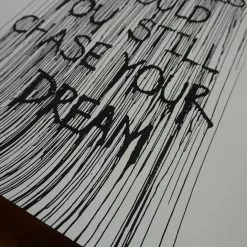 YOU STILL
CHASE YOUR
DREAM